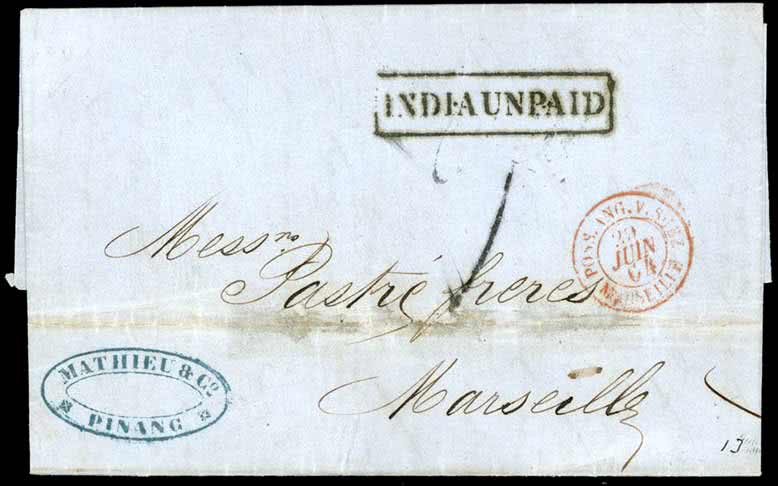 INDIA UNPAID
POSS. ANG. V. SUEZ
29
JUIN
64
MARSEILLE
Messrs
Pastré frères
Marseille
MATHIEU & Co
PINANG
13